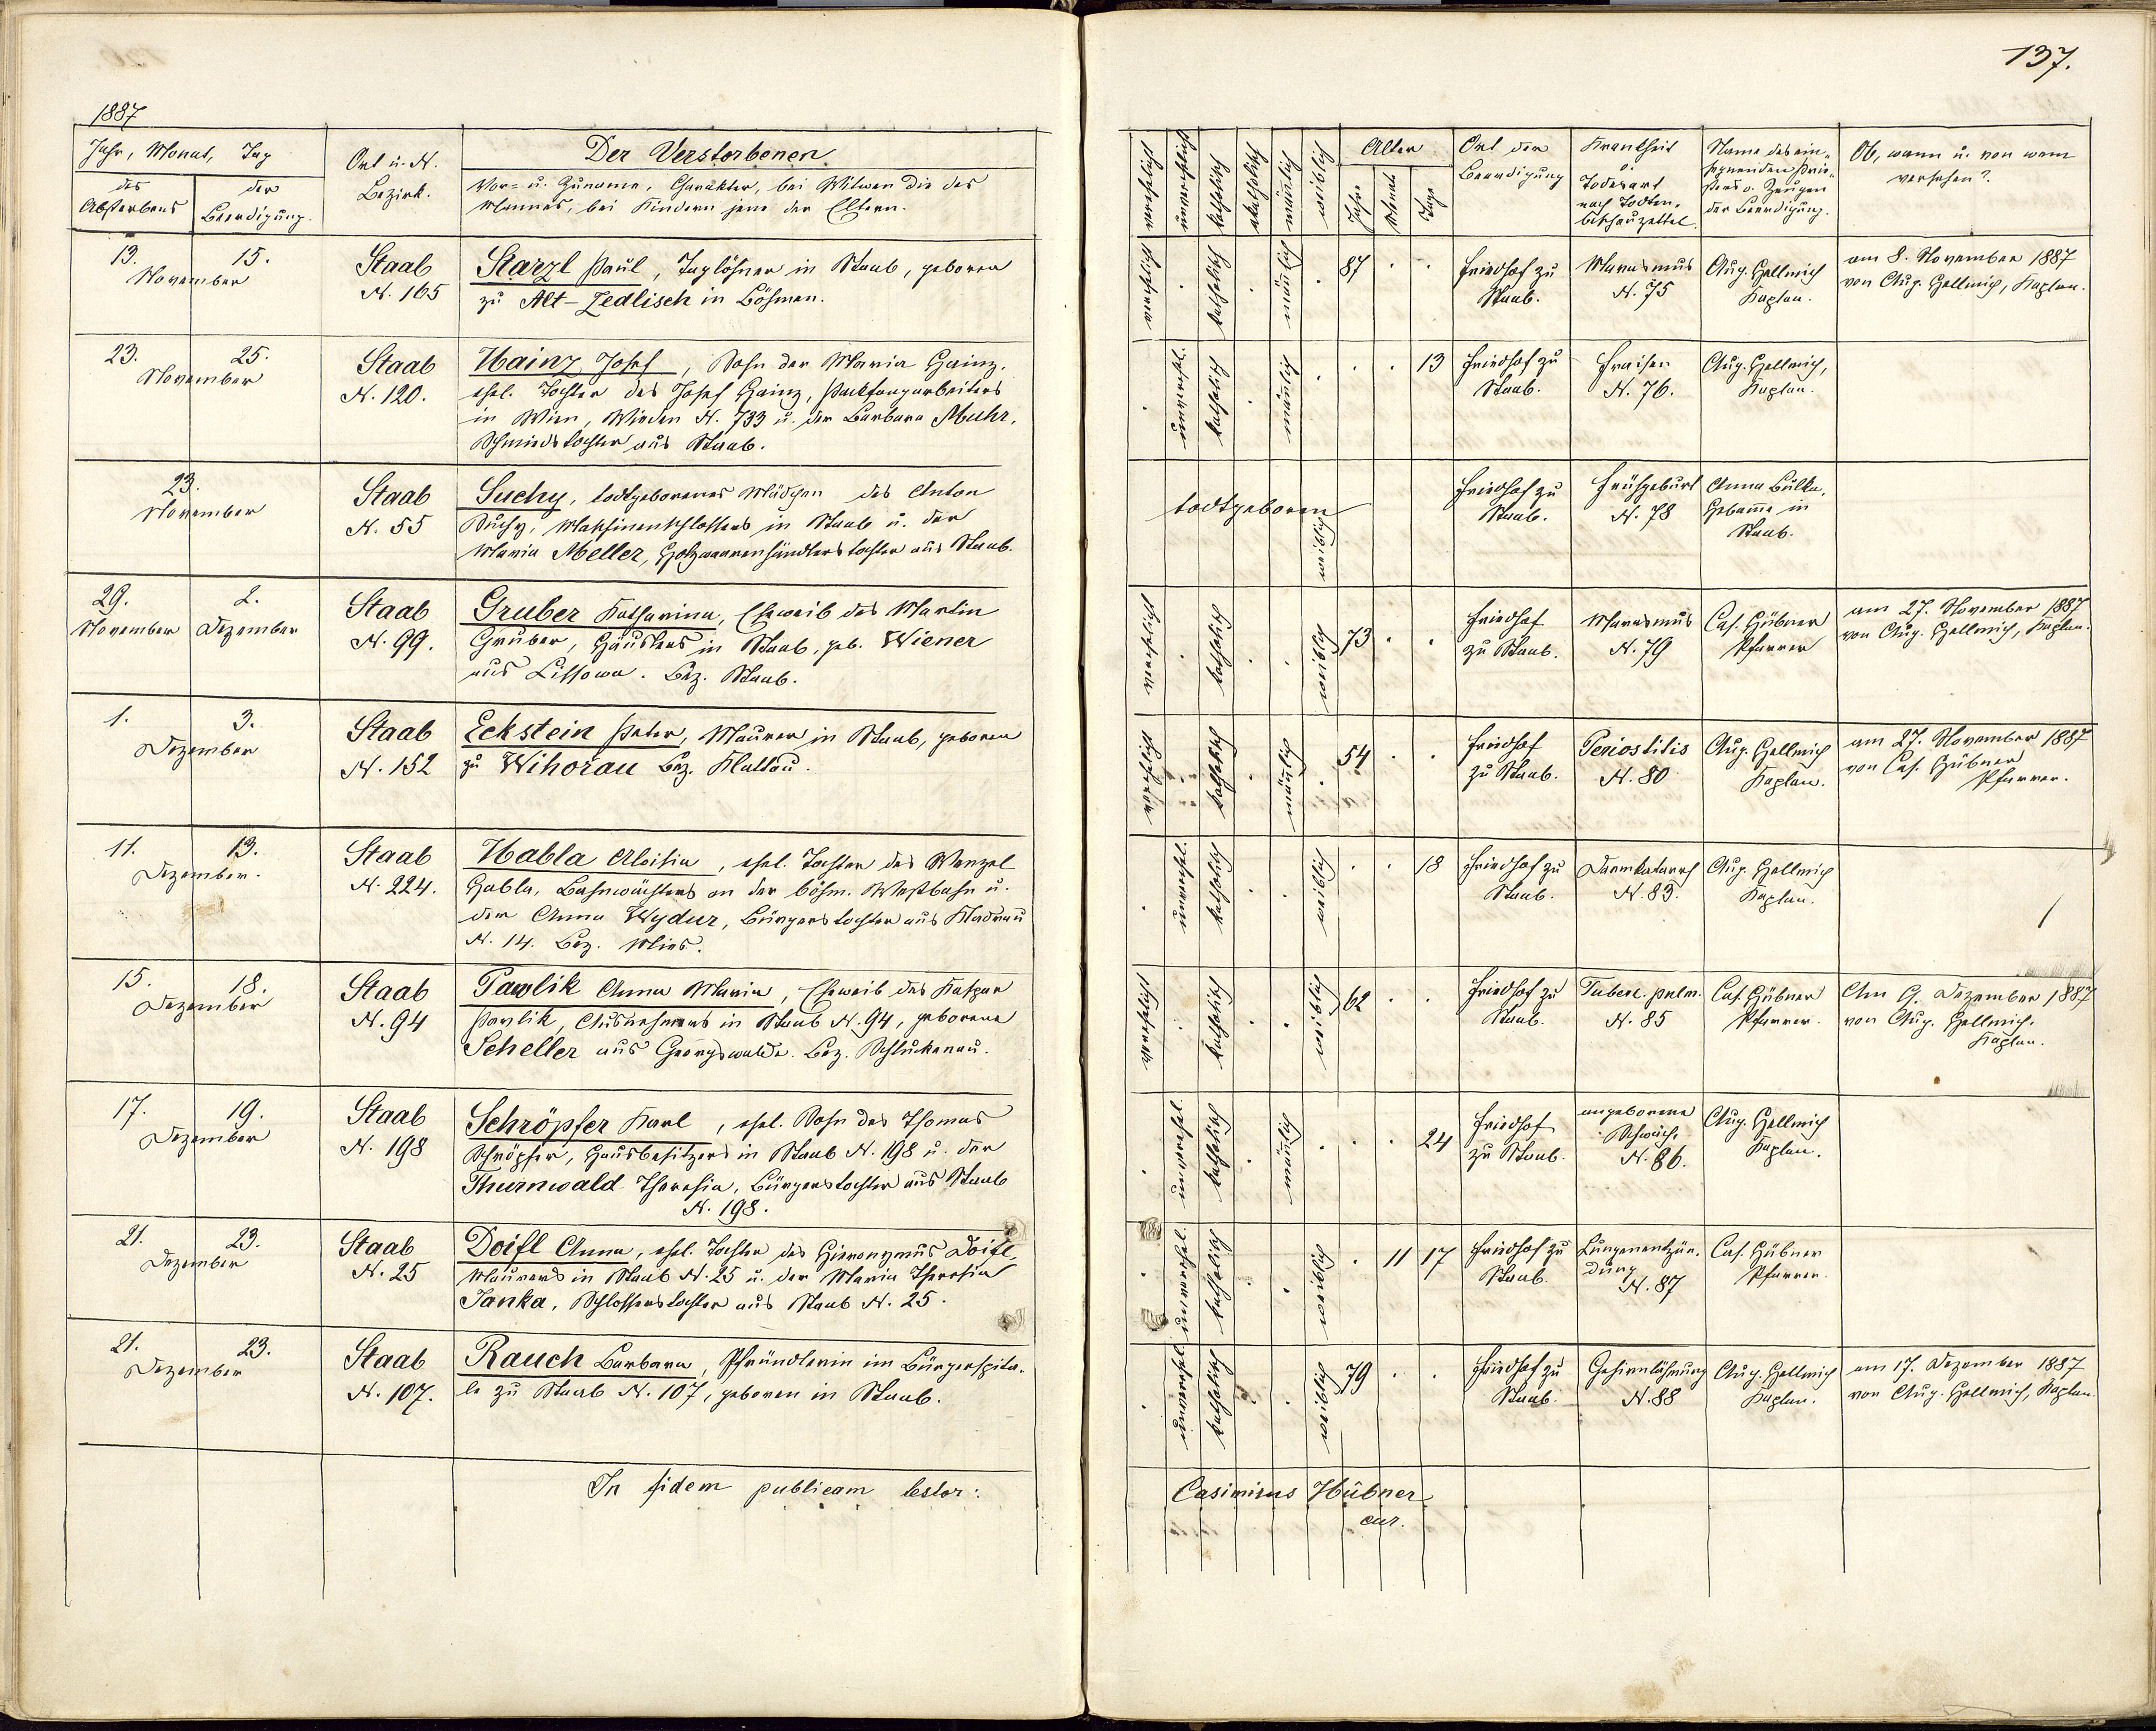 137.
1887
Jahr, Monat, Tag
des Absterbens
der Beerdigung.
Ort u. N.
Bezirk.
Der Verstorbenen
Vor- u. Zuname, Charakter, bei Witwen die des
Mannes, bei Kindern jene der Eltern.
verehelicht
unverehelicht
katholisch
akatholisch
männlich
weiblich
Alter
Jahre
Monat
Tage
Ort der
Beerdigung
Krankheit
o.
Todesart
nach Todten-
beschauzettel.
Name des ein-
segnenden Prie-
sters o. Zeugen
der Beerdigung.
Ob, wann u. von wem
versehen?
13. 15.
November
Staab
N. 165
Starzl Paul, Taglöhner in Staab, geboren
zu Alt-Zedlisch in Böhmen.
verehelicht
katholisch
männlich
87
Friedhof zu
Staab.
Marasmus
N. 75
Aug. Hellmich
Kaplan.
am 8. November 1887
von Aug. Hellmich, Kaplan.
23. 25.
November
Staab
N. 120.
Hainz Josef, Sohn der Maria Hainz,
ehel. Tochter des Josef Hainz,
in Wien, Wieden N. 733 u. der Barbara Muhr,
Schmiedstochter aus Staab.
unverehel.
katholisch
männlich
13
Friedhof zu
Staab.
Fraisen
N. 76.
Aug. Hellmich,
Kaplan.
23.
November
Staab
N. 55
Suchy, todtgeborenes Mädchen des Anton
Suchy, Maschinenschlossers in Staab u. der
Maria Meller, Holzwaarenhändlerstochter aus Staab.
todtgeboren
weiblich
Friedhof zu
Staab.
Frühgeburt
N. 78
Anna Bülka,
Hebamme in
Staab.
29. 2.
November Dezember
Staab
N. 99.
Gruber Katharina, Eheweib des Martin
Gruber, Häuslers in Staab, geb. Wiener
aus Lissowa. Bez. Staab.
verehelicht
katholisch
weiblich
73
Friedhof
zu Staab.
Marasmus
N. 79
Cas. Hübner
Pfarrer
am 27. November 1887
von Aug. Hellmich, Kaplan.
1. 3.
Dezember
Staab
N. 152
Eckstein Peter, Maurer in Staab, geboren
zu Wihorau Bez. Klattau.
verehelicht
katholisch
männlich
54
Friedhof
zu Staab.
Periostitis
N. 80
Aug. Hellmich
Kaplan.
am 27. November 1887
von Cas. Hübner
Pfarrer.
11. 13.
Dezember.
Staab
N. 224.
Habla Aloisia, ehel. Tochter des Wenzel
Habla, Bahnwächters an der böhm. Westbahn u.
der Anna Wydur, Bürgerstochter aus Kladrau
N. 14. Bez. Mies.
unverehel.
katholisch
weiblich
18
Friedhof zu
Staab.
Darmkatarrh
N. 83.
Aug. Hellmich
Kaplan.
15. 18.
Dezember
Staab
N. 94
Pawlik Anna Maria, Eheweib des Kaspar
Pawlik, Ausnehmers in Staab N. 94, geborene
Scheller aus Georgswalde. Bez. Schluckenau.
verehelicht
katholisch
weiblich
62
Friedhof zu
Staab.
Tuberc. pulm.
N. 85
Cas. Hübner
Pfarrer.
Am 9. Dezember 1887
von Aug. Hellmich,
Kaplan.
17. 19.
Dezember
Staab
N. 198
Schröpfer Karl, ehel. Sohn des Thomas
Schröpfer, Hausbesitzers in Staab N. 198 u. der
Thurnwald Theresia, Bürgerstochter aus Staab
N. 198.
unverehel.
katholisch
männlich
24
Friedhof
zu Staab.
angeborene
Schwäche
N. 86.
Aug. Hellmich
Kaplan.
21. 23.
Dezember
Staab
N. 25
Doifl Anna, ehel. Tochter des Hieronymus Doifl,
Maurers in Staab N. 25 u. der Maria Theresia
Janka, Schlosserstochter aus Staab N. 25.
unverehel.
katholisch
weiblich
11 17
Friedhof zu
Staab.
Lungenentzün-
dung
N. 87
Cas. Hübner
Pfarrer.
21. 23.
Dezember
Staab
N. 107.
Rauch Barbara, Pfründlerin im Bürgerspita-
le zu Staab N. 107, geboren in Staab.
unverehel.
katholisch
weiblich
79
Friedhof zu
Staab.
Gehirnlähmung
N. 88
Aug. Hellmich
Kaplan.
am 17. Dezember 1887
von Aug. Hellmich, Kaplan.
In fidem publicam testor:
Casimirus Hübner
cur.